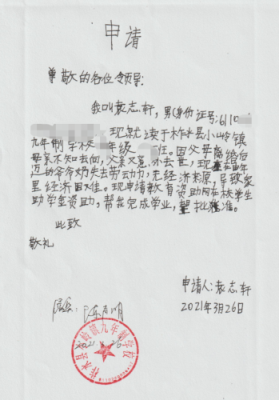 申请
尊敬的各位领导:
我叫袁志轩,男,身份证号:610
现就读于柞水县小岭镇
九年制学校 年级 任。因父母离婚后
母亲不知去向,父亲又意外去世,现
迈的爷爷奶奶失去劳动力,无经济来源,导致家
里经济困难。现申请教育资助
助学金资助,帮我完成学业,望批准。
此致
敬礼
申请人:袁志轩
2021年3月26日
柞水县小岭镇九年制学校